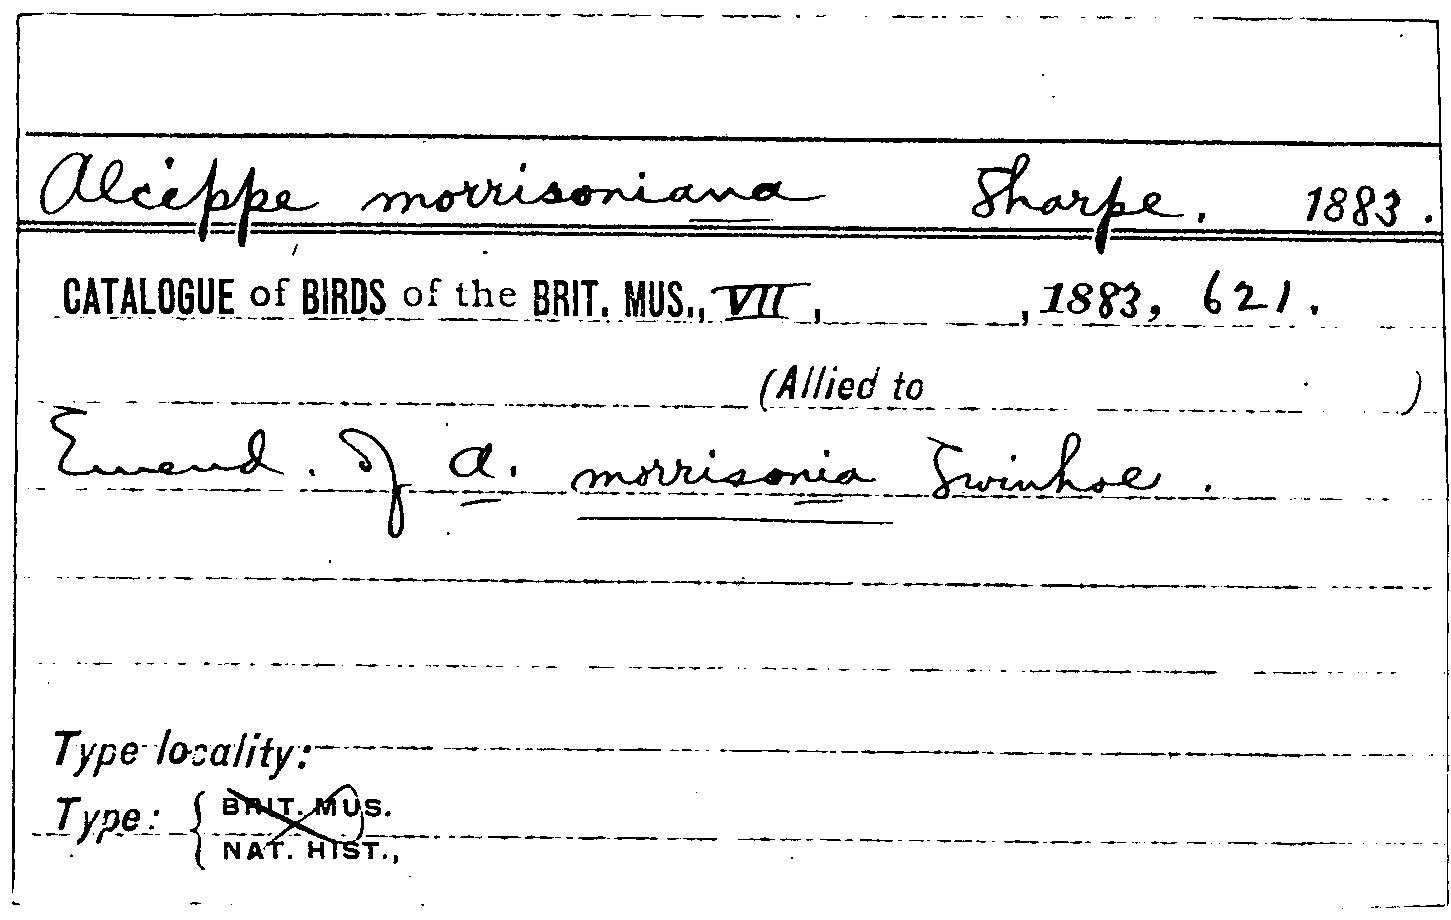 Alcippe morrisoniana Sharpe. 1883.
CATALOGUE of BIRDS of the BRIT. MUS., VII, , 1883, 621.
(Allied to )
Emend. of A. morrisonia Swinhoe.
Type locality:
Type: { BRIT. MUS.
NAT. HIST.,